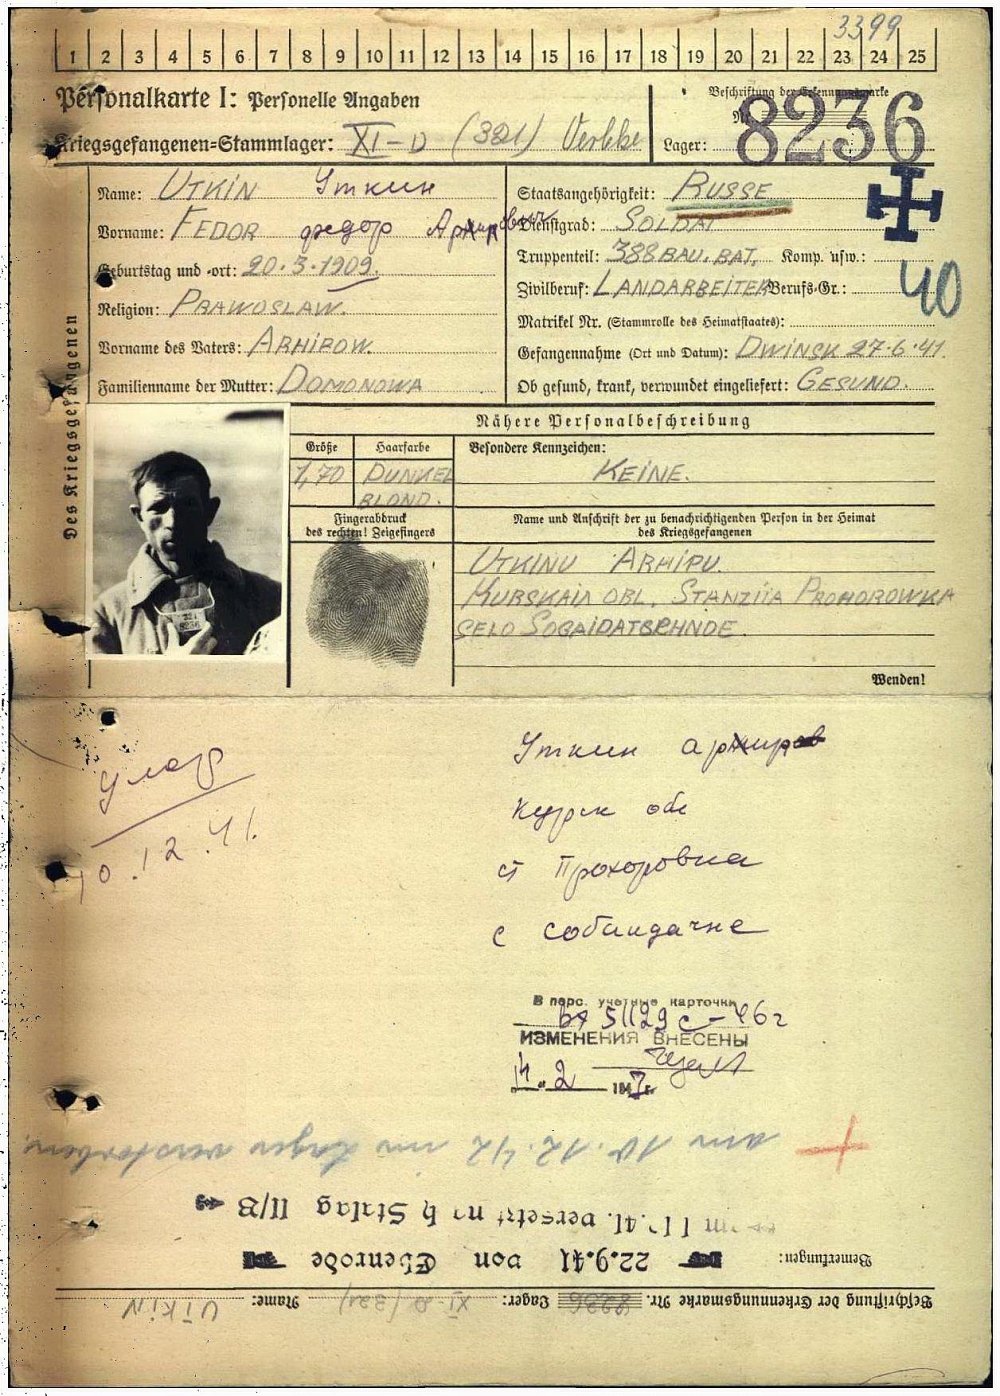 3399
1 2 3 4 5 6 7 8 9 10 11 12 13 14 15 16 17 18 19 20 21 22 23 24 25
Personalkarte I: Personelle Angaben
Beschriftung der Erkennungsmarke
Nr. 8236
Kriegsgefangenen-Stammlager: XI-D (321) Oerbke
Lager:
Des Kriegsgefangenen
Name: UTKIN Уткин
Vorname: FEDOR федор
Geburtstag und -ort: 20.3.1909.
Religion: PRAWOSLAW.
Vorname des Vaters: ARHIPOW.
Familienname der Mutter: DOMONOWA
Staatsangehörigkeit: RUSSE
Dienstgrad: SOLDAT
Truppenteil: 388 BAU. BAT. Komp. usw.:
40
Zivilberuf: LANDARBEITER Berufs-Gr.:
Matrikel Nr. (Stammrolle des Heimatstaates):
Gefangennahme (Ort und Datum): DWINSK 27.6.41.
Ob gesund, krank, verwundet eingeliefert: GESUND.
Nähere Personalbeschreibung
Größe Haarfarbe Besondere Kennzeichen:
1,70 DUNKEL BLOND. KEINE.
Fingerabdruck
des rechten! Zeigefingers
Name und Anschrift der zu benachrichtigenden Person in der Heimat
des Kriegsgefangenen
321
8236
UTKINU ARHIPU.
KURSKAIA OBL. STANZIIA PROHOROWKA
SELO
Wenden!
Уткин
Курск обл
ст Прохоровка
с
10.12.41.
В перс. учетные карточки
51129 с-46г
ИЗМЕНЕНИЯ ВНЕСЕНЫ
14.2 1947г.
am 10.12.42 im Lager verstorben.
versetzt nach Stalag II/B
Bemerkungen: 22.9.41 von Ebenrode
Beschriftung der Erkennungsmarke Nr. 8236 Lager: XI-D (321) Name: UTKIN